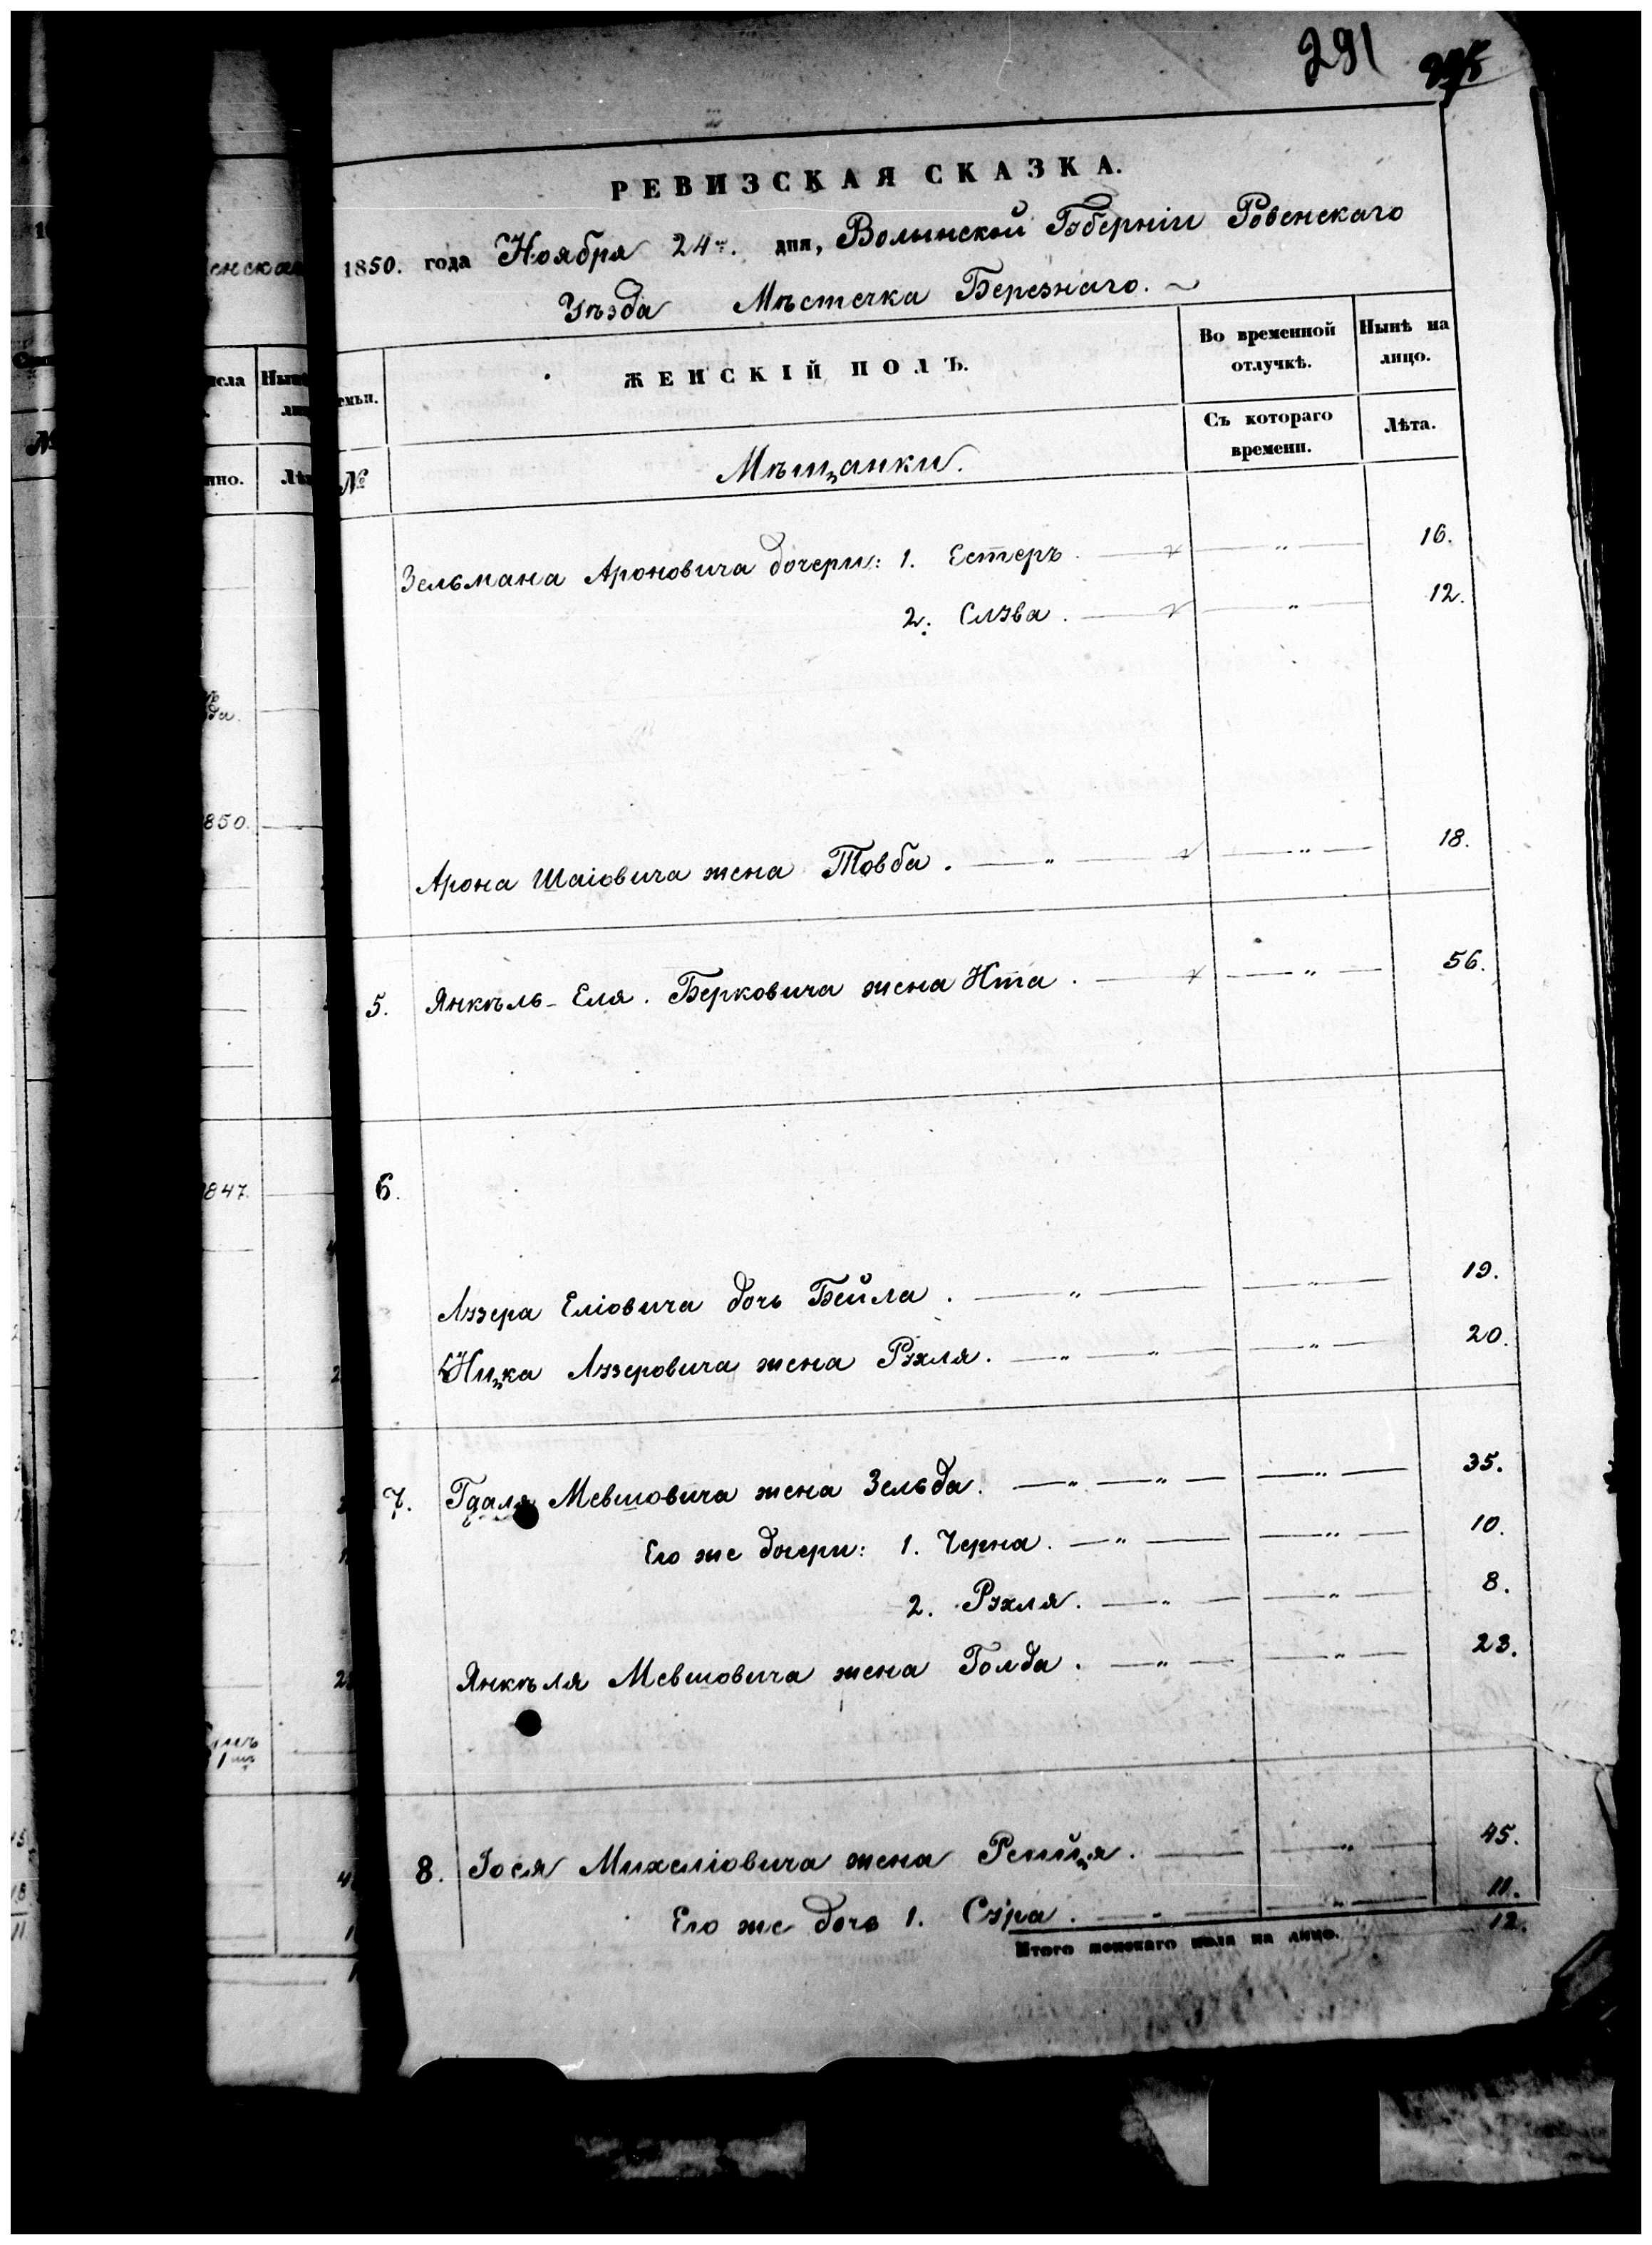 291
РЕВИЗСКАЯ СКАЗКА.
1850. года Ноября 24го. дня, Волынской Губерніи Ровенскаго
Уѣзда Мѣстечка Березнаго.
ЖЕНСКІЙ ПОЛЪ.
Во временной отлучкѣ.
Нынѣ на лицо.
Съ котораго времени.
Лѣта.
№
Мѣщанки.
Зельмана Ароновича дочери: 1. Естеръ. — " — 16.
2. Слува. — " — 12.
Арона Шаіовича жена Товба. — " — " — 18.
5. Янкѣль-Еля. Берковича жена Ита. — " — 56.
6.
Лузера Еліовича дочь Бейла. — " — " — 19.
Ицка Лузеровича жена Рухля. — " — " — " — 20.
7. Гдаля Мевшовича жена Зельда. — " — " — " — 35.
Его же дочери: 1. Черна. — " — " — 10.
2. Рухля. — " — " — 8.
Янкѣля Мевшовича жена Голда. — " — " — 23.
8. Іося Михеліовича жена — " — 45.
Его же дочь 1. Сура. — " — " — 11.
Итого женскаго пола на лицо. 12.
850.
847.